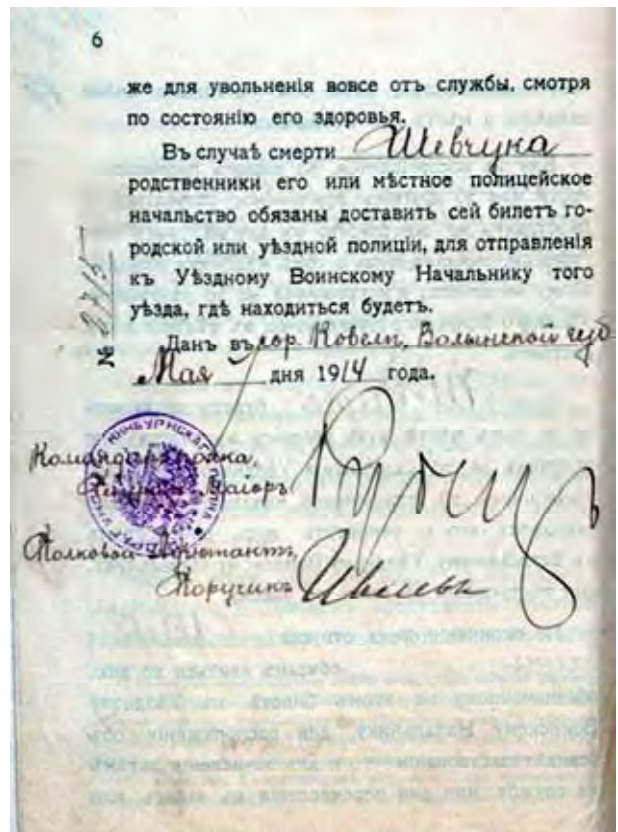 6
же для увольненія вовсе отъ службы, смотря
по состоянію его здоровья.
Въ случаѣ смерти Шевчука
родственники его или мѣстное полицейское
начальство обязаны доставить сей билетъ го-
родской или уѣздной полиціи, для отправленія
къ Уѣздному Воинскому Начальнику того
уѣзда, гдѣ находиться будетъ.
Данъ въ гор. Ковелѣ, Волынской губ
Мая дня 1914 года.
№ 2715
КИНБУРНСКАГО
Командиръ полка,
Маіоръ
Полковой Адъютантъ,
Поручикъ